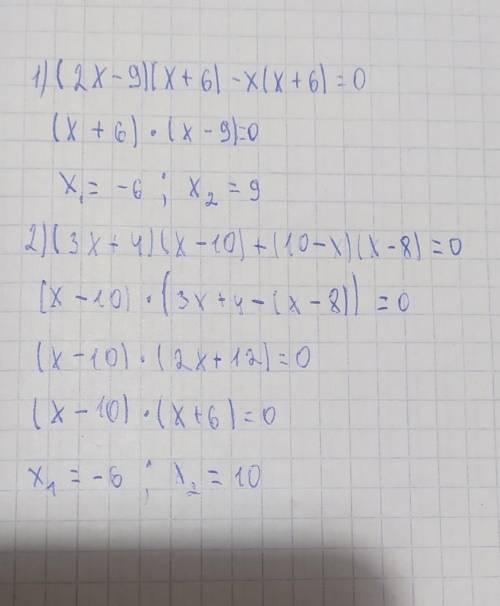 1) (2x-9)(x+6)-x(x+6)=0
(x+6)·(x-9)=0
x₁=-6; x₂=9
2) (3x+4)(x-10)+(10-x)(x-8)=0
(x-10)·(3x+4-(x-8))=0
(x-10)·(2x+12)=0
(x-10)·(x+6)=0
x₁=-6; x₂=10